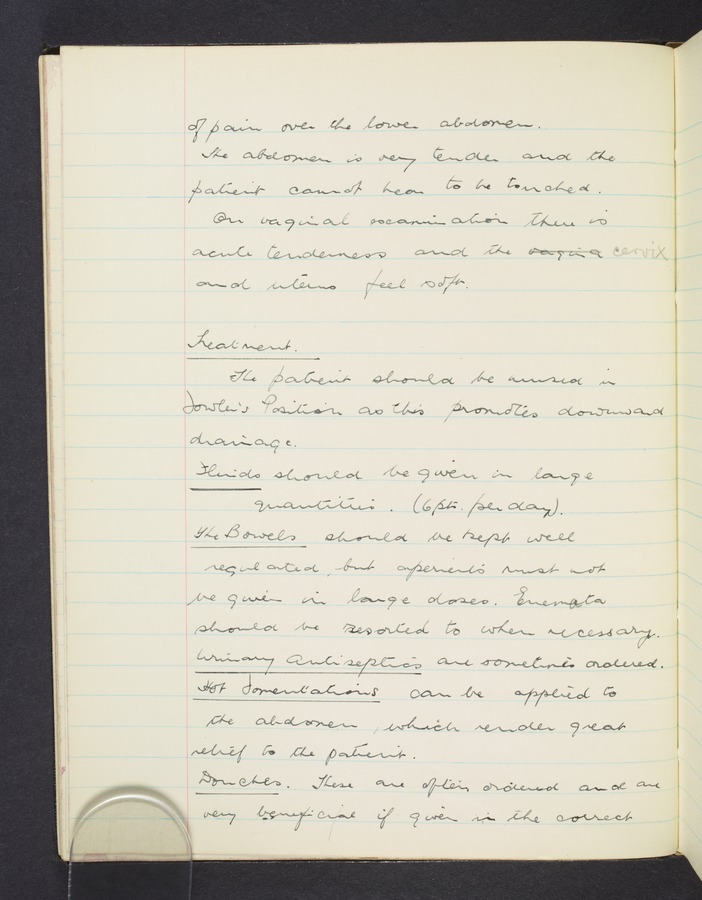 of pain over the lower abdomen.
The abdomen is very tender and the
patient cannot bear to be touched.
On vaginal examination there is
acute tenderness and the vagina cervix
and uterus feel soft.
Treatment.
The patient should be nursed in
Fowler's Position as this promotes downward
drainage.
Fluids should be given in large
quantities. (6pts. per day).
The Bowels should be kept well
regulated, but aperients must not
be given in large doses. Enemata
should be resorted to when necessary.
Urinary Antiseptics are sometimes ordered.
Hot Fomentations can be applied to
the abdomen, which render great
relief to the patient.
Douches. These are often ordered and are
very beneficial if given in the correct